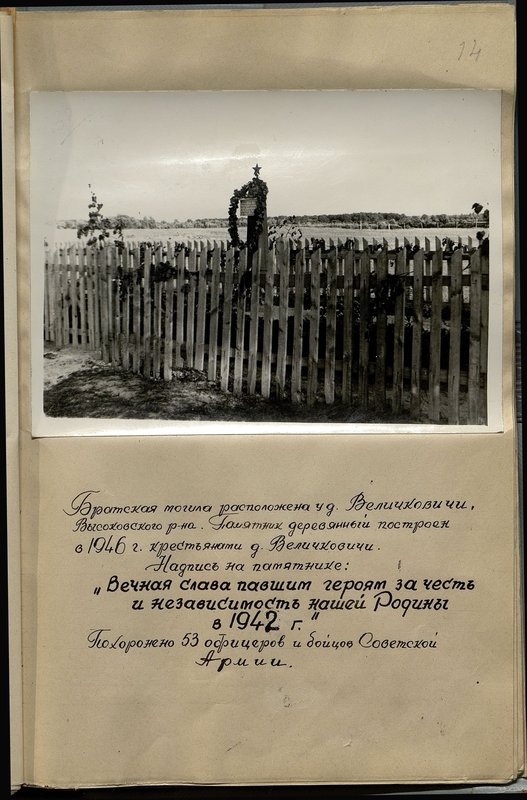 14
Братская могила расположена у д. Величковичи,
Высоковского р-на. Памятник деревянный построен
в 1946 г. крестьянами д. Величковичи.
Надпись на памятнике:
„Вечная слава павшим героям за честь
и независимость нашей Родины
в 1942 г."
Похоронено 53 офицеров и бойцов Советской
Армии.